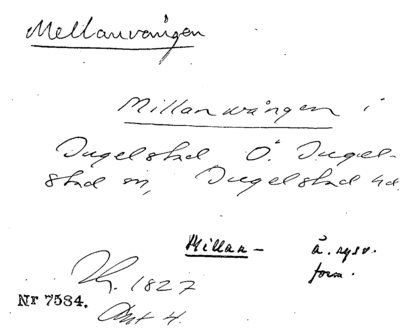 Mellanvången
Millanvången i
Ingelstad Ö. Ingel-
stad sn, Ingelstad hd.
Millan- ä. sysv.
form.
1827
Nr 7584. Akt 4.